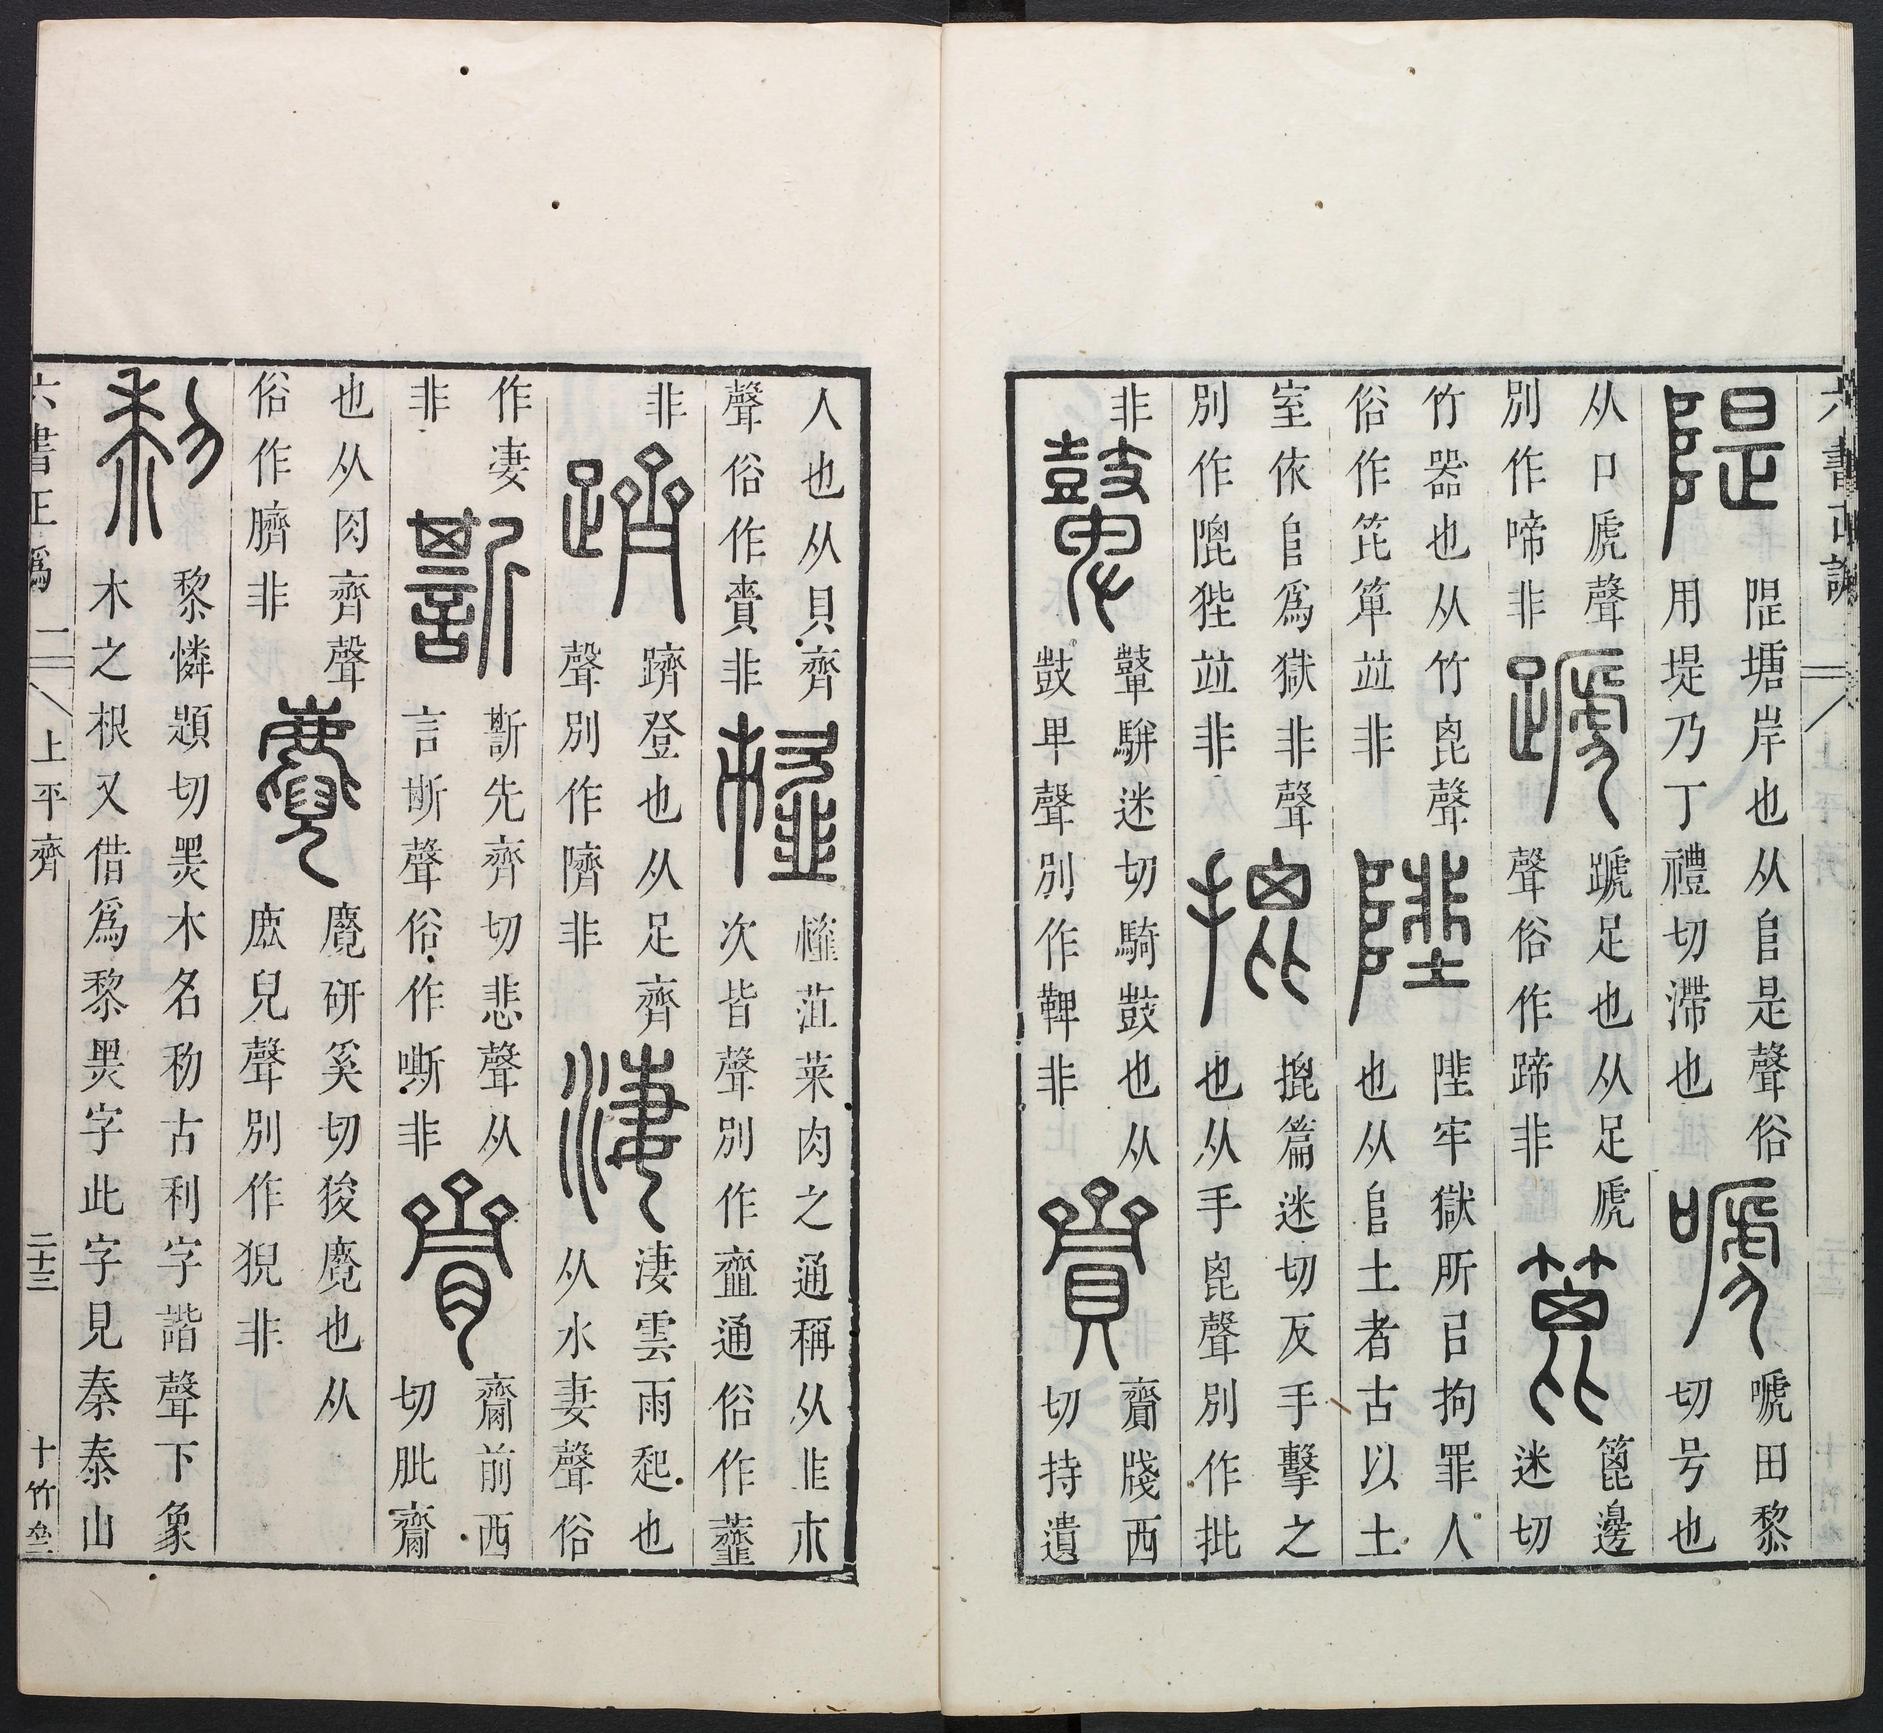 六書正譌
隄
隄塘岸也从𨸏是聲俗
用堤乃丁禮切滯也
嗁
嗁田黎
切号也
从口虒聲
別作啼非
蹏
蹏足也从足虒
聲俗作蹄非
箆
箆邊
迷切
竹器也从竹毘聲
俗作笓箄竝非
陛
陛牢獄所㠯拘罪人
也从𨸏土者古以土
室依𨸏爲獄非聲
別作䧛狴竝非
㨽
㨽篇迷切反手擊之
也从手毘聲別作批
非
鼙
鼙騈迷切騎鼓也从
鼓卑聲別作鞞非
齎
齎牋西
切持遺
人也从貝齊
聲俗作賷非
虀
菹菜肉之通稱从韭𣎳
次皆聲別作齏通俗作虀
非
躋
躋登也从足齊
聲別作隮非
淒
淒雲雨起也
从水妻聲俗
作凄
非
先齊切悲聲从
言斯聲俗作嘶非
齎前西
切肶齎
也从肉齊聲
俗作臍非
麑
麑研奚切狻麑也从
鹿兒聲別作猊非
黎憐題切㬎木名称古利字諧聲下象
木之根又借爲黎黑字此字見秦泰山
六書正譌
二
上平齊
二十三
十竹